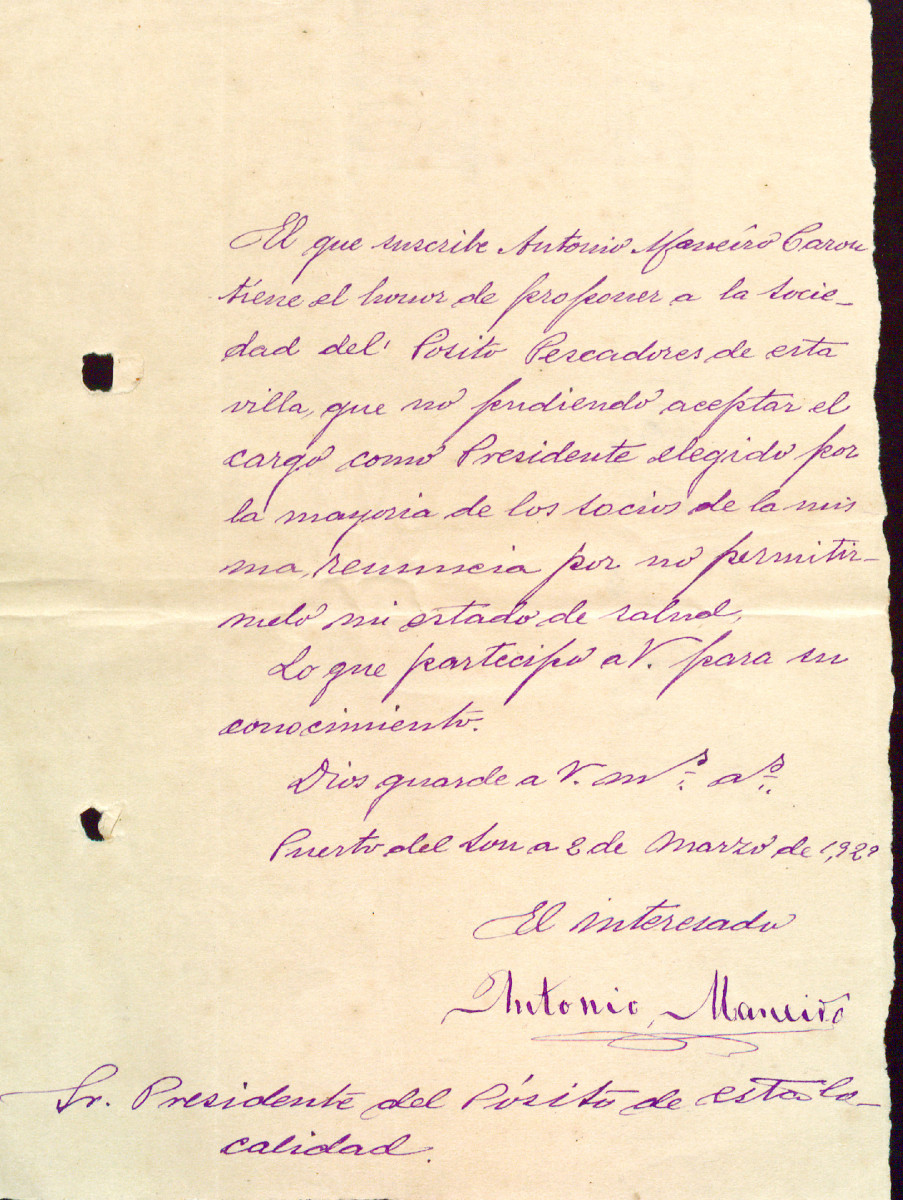 El que suscribe Antonio Maneiro Carou
tiene el honor de proponer a la socie-
dad del Posito Pescadores de esta
villa, que no pudiendo aceptar el
cargo como Presidente elegido por
la mayoria de los socios de la mis
ma, renuncia por no permitir-
melo mi estado de salud,
Lo que partecipo a V. para su
conocimiento.
Dios guarde a V. mˢ. aˢ.
Puerto del Son a 2 de Marzo de
El interesado
Antonio Maneiro
Sr. Presidente del Pósito de esta lo-
calidad.